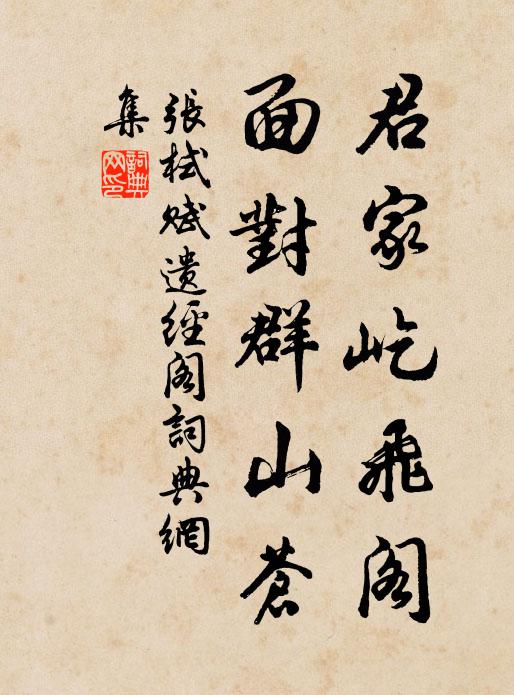 君家屹飛閣
面對群山蒼
張栻賦遺經閣詞典網
集
詞典網印